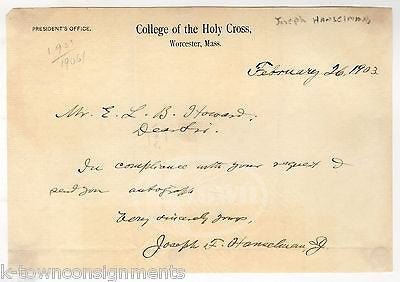 PRESIDENT'S OFFICE.
College of the Holy Cross,
Worcester, Mass.
Joseph HANSELMAN
1901
1906
February 26, 1903
Mr. E. L. B. Howard.
Dear Sir.
In compliance with your request I
send you autograph
Very sincerely yours,
Joseph F. Hanselman SJ.
k-townconsignments